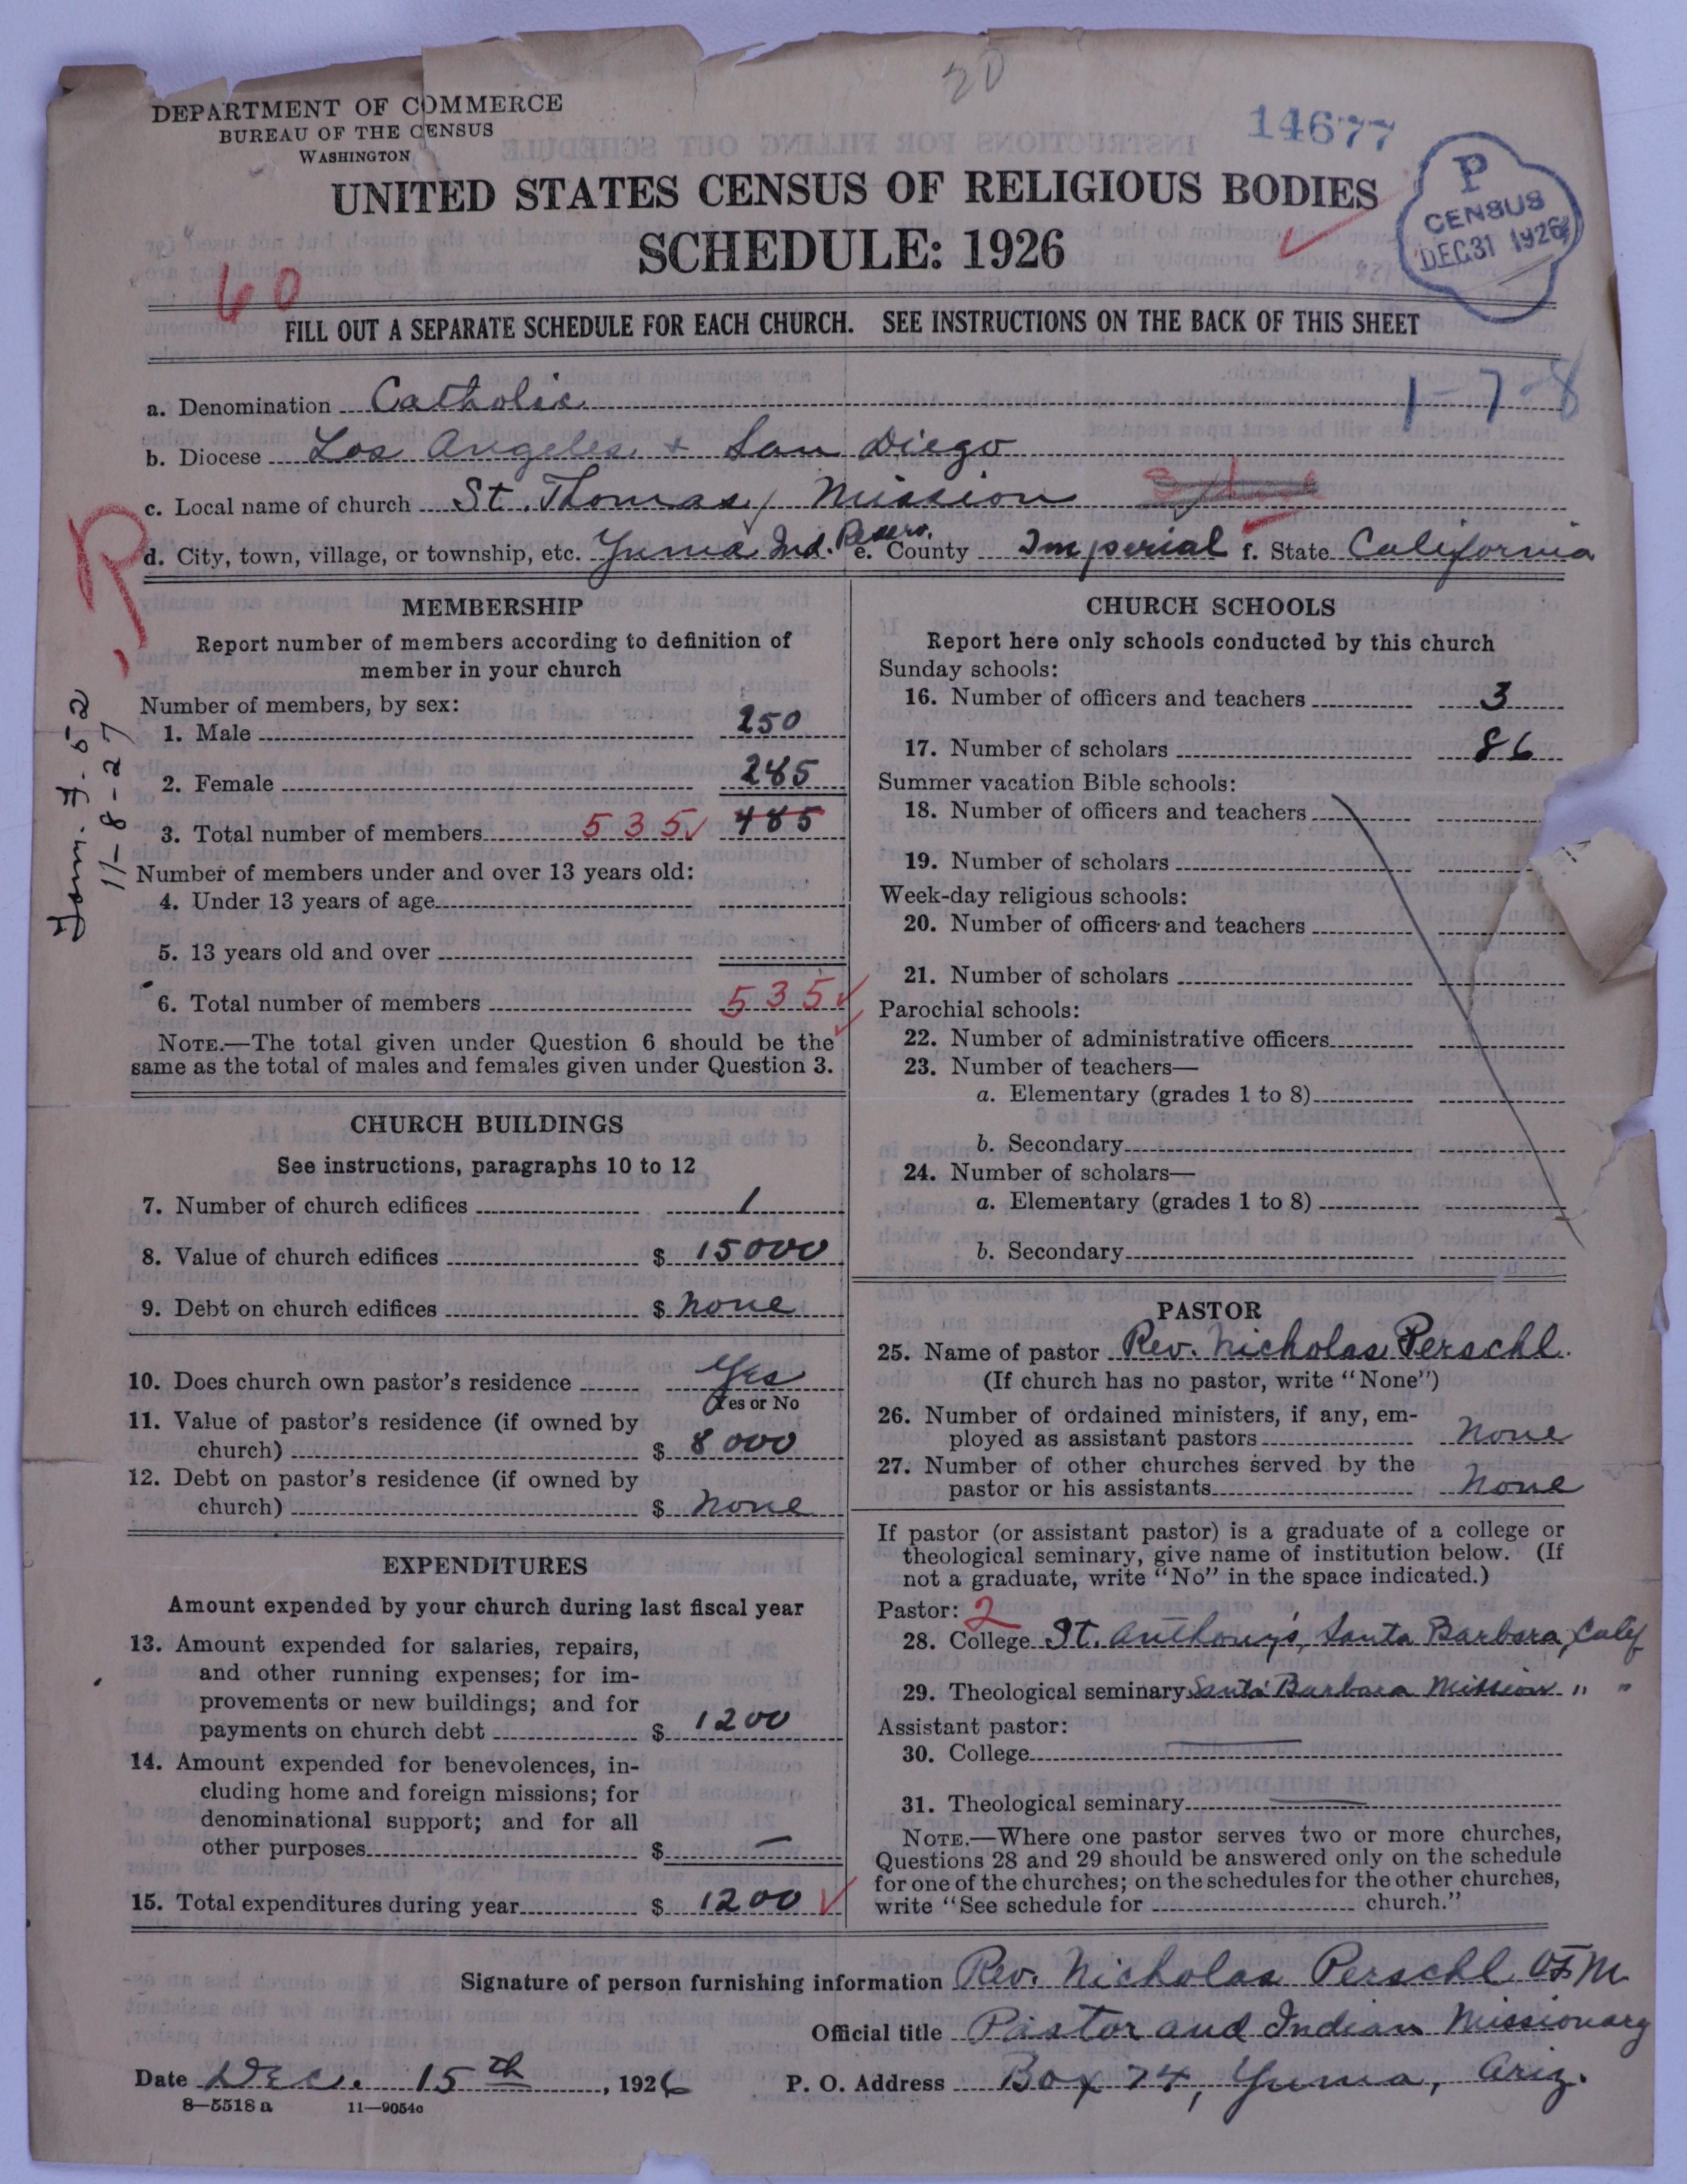 20
DEPARTMENT OF COMMERCE
BUREAU OF THE CENSUS
WASHINGTON
14677
P
CENSUS
DEC 31 1926
UNITED STATES CENSUS OF RELIGIOUS BODIES
SCHEDULE: 1926
60
FILL OUT A SEPARATE SCHEDULE FOR EACH CHURCH. SEE INSTRUCTIONS ON THE BACK OF THIS SHEET
1-7-8
a. Denomination Catholic
b. Diocese Los Angeles & San Diego
c. Local name of church St. Thomas, Mission
d. City, town, village, or township, etc. Yuma Ind. Reserv. e. County Imperial f. State California
R
11-8-27
MEMBERSHIP
Report number of members according to definition of
member in your church
Number of members, by sex:
1. Male 250
2. Female 285
3. Total number of members 535 485
Number of members under and over 13 years old:
4. Under 13 years of age
5. 13 years old and over
6. Total number of members 535
NOTE.—The total given under Question 6 should be the
same as the total of males and females given under Question 3.
CHURCH BUILDINGS
See instructions, paragraphs 10 to 12
7. Number of church edifices 1
8. Value of church edifices $ 15000
9. Debt on church edifices $ none
10. Does church own pastor's residence Yes
Yes or No
11. Value of pastor's residence (if owned by
church) $ 8000
12. Debt on pastor's residence (if owned by
church) $ none
EXPENDITURES
Amount expended by your church during last fiscal year
13. Amount expended for salaries, repairs,
and other running expenses; for im-
provements or new buildings; and for
payments on church debt $ 1200
14. Amount expended for benevolences, in-
cluding home and foreign missions; for
denominational support; and for all
other purposes $ —
15. Total expenditures during year $ 1200
CHURCH SCHOOLS
Report here only schools conducted by this church
Sunday schools:
16. Number of officers and teachers 3
17. Number of scholars 86
Summer vacation Bible schools:
18. Number of officers and teachers
19. Number of scholars
Week-day religious schools:
20. Number of officers and teachers
21. Number of scholars
Parochial schools:
22. Number of administrative officers
23. Number of teachers—
a. Elementary (grades 1 to 8)
b. Secondary
24. Number of scholars—
a. Elementary (grades 1 to 8)
b. Secondary
PASTOR
25. Name of pastor Rev. Nicholas Perschl.
(If church has no pastor, write "None")
26. Number of ordained ministers, if any, em-
ployed as assistant pastors none
27. Number of other churches served by the
pastor or his assistants none
If pastor (or assistant pastor) is a graduate of a college or
theological seminary, give name of institution below. (If
not a graduate, write "No" in the space indicated.)
Pastor: 2
28. College St. Anthony's, Santa Barbara, Calif
29. Theological seminary Santa Barbara Mission " "
Assistant pastor:
30. College
31. Theological seminary
NOTE.—Where one pastor serves two or more churches,
Questions 28 and 29 should be answered only on the schedule
for one of the churches; on the schedules for the other churches,
write "See schedule for church."
Signature of person furnishing information Rev. Nicholas Perschl OFM
Official title Pastor and Indian Missionary
Date Dec. 15th, 1926 P. O. Address Box 74, Yuma, Ariz.
8—5518 a 11—9054c